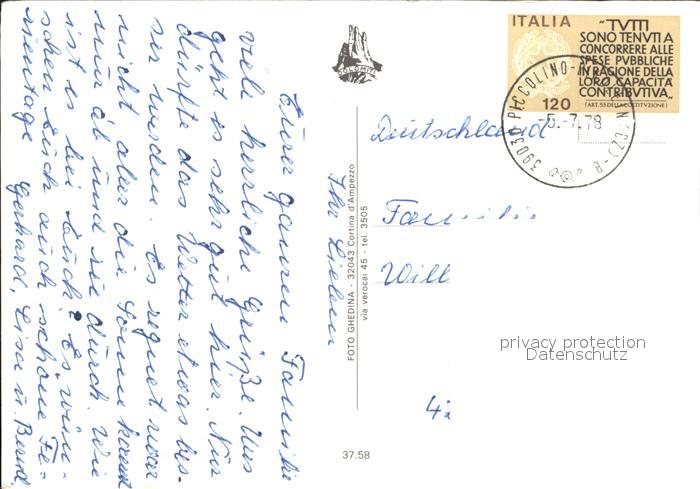 Ihr Lieben
Eurer ganzen Familie
viele herrliche Grüße. Uns
geht es sehr gut hier. Nur
dürfte das Wetter etwas bes-
ser werden. Es regnet zwar
nicht aber die Sonne kommt
nur ab und zu durch. Wie
ist es bei Euch? Es wün-
schen Euch auch schöne Fe-
rientage Gerhard, Lisa u. Bernd
DOLOMITI
FOTO GHEDINA - 32043 Cortina d'Ampezzo
via verocai 45 - tel. 3505
37.58
ITALIA
120
"TVTTI
SONO TENVTI A
CONCORRERE ALLE
SPESE PVBBLICHE
IN RAGIONE DELLA
LORO CAPACITÀ
CONTRIBVTIVA"
(ART. 53 DELLA COSTITVZIONE)
39030 PICCOLINO
5.-7.78
Deutschland
Familie
Will
privacy protection
Datenschutz